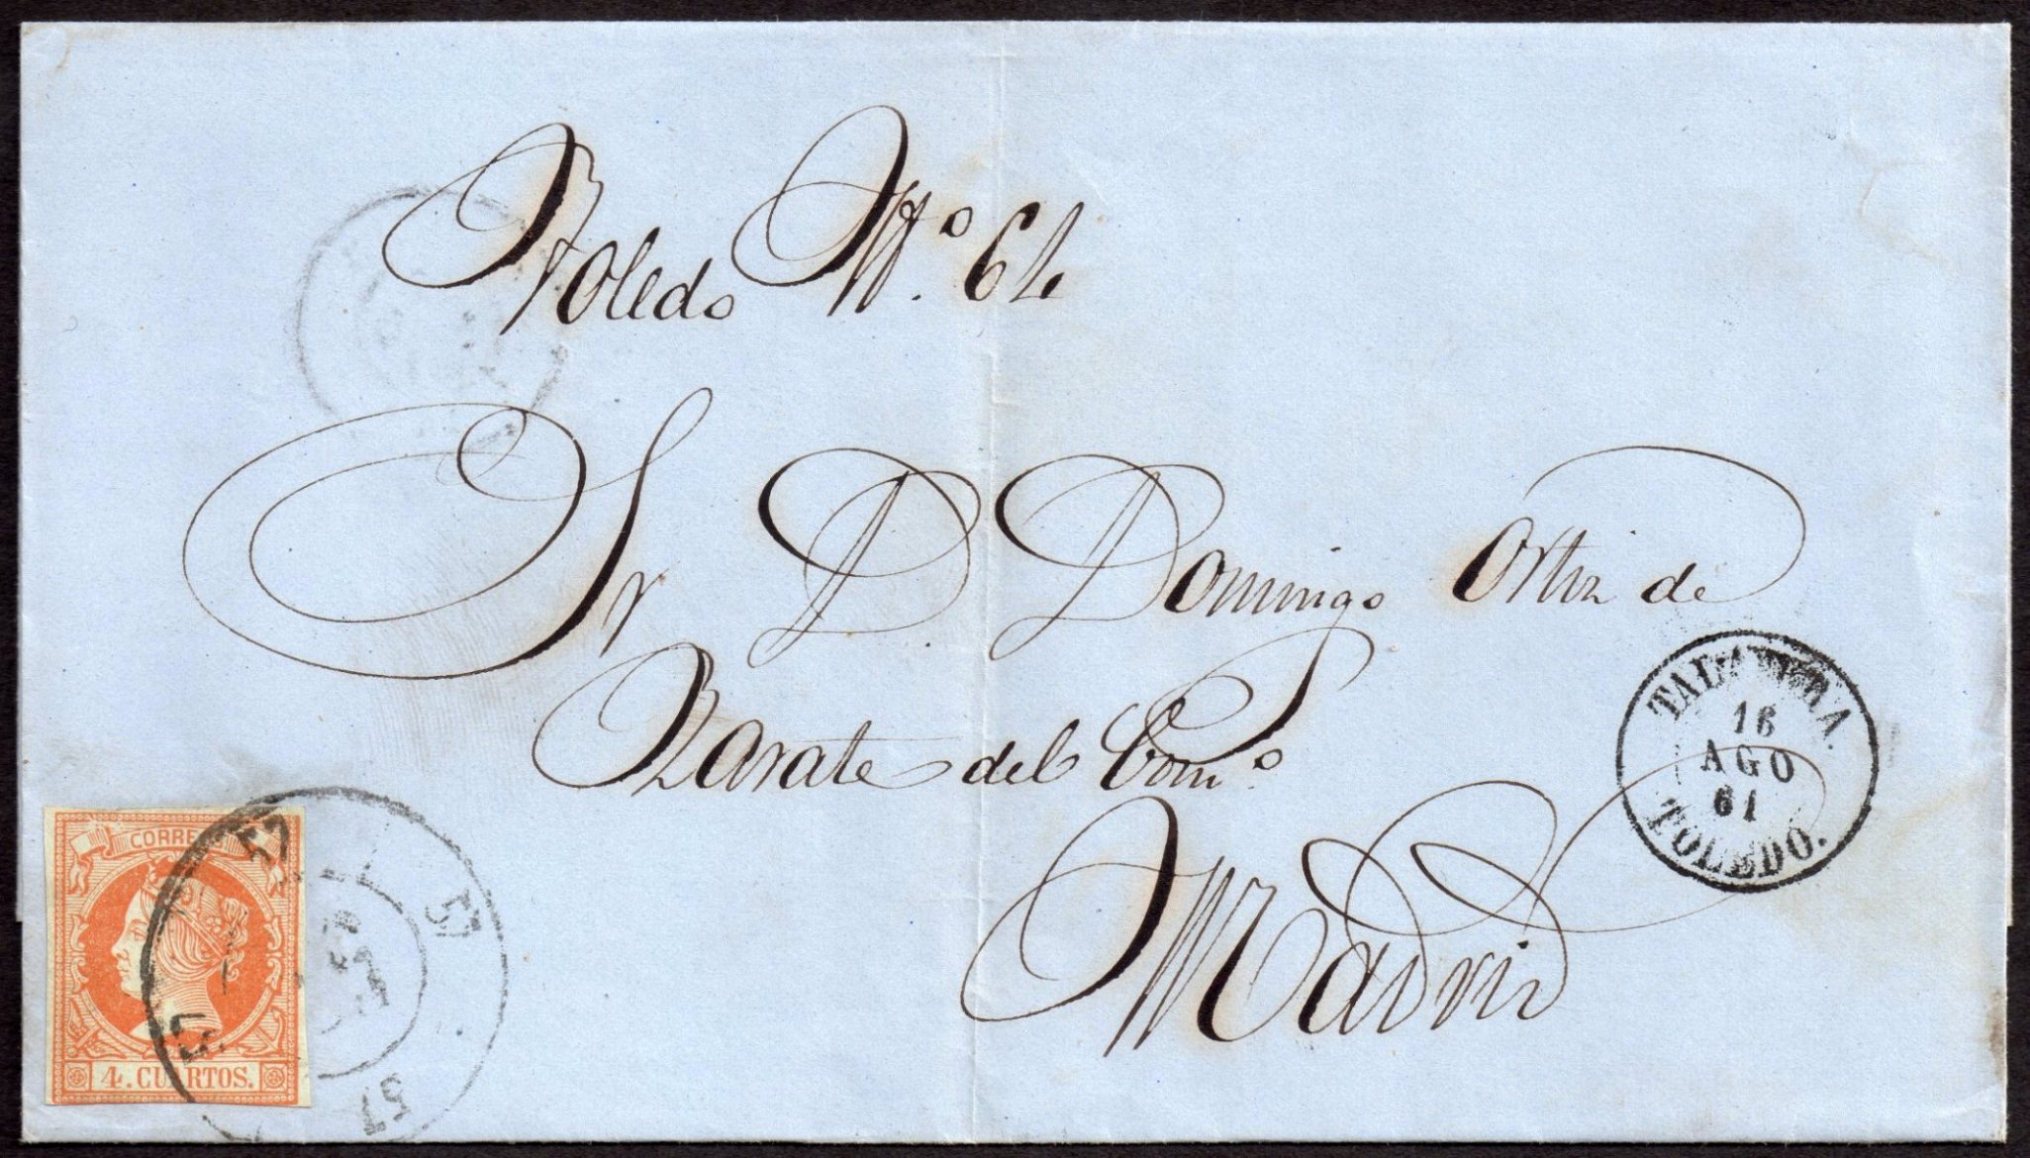 Toledo Nº. 64
Sr D. Domingo Ortiz de
Zarate del Comº
Madrid
TALAVERA.
16
AGO
61
TOLEDO.
CORRE
4. CUARTOS.
57
57
57
57